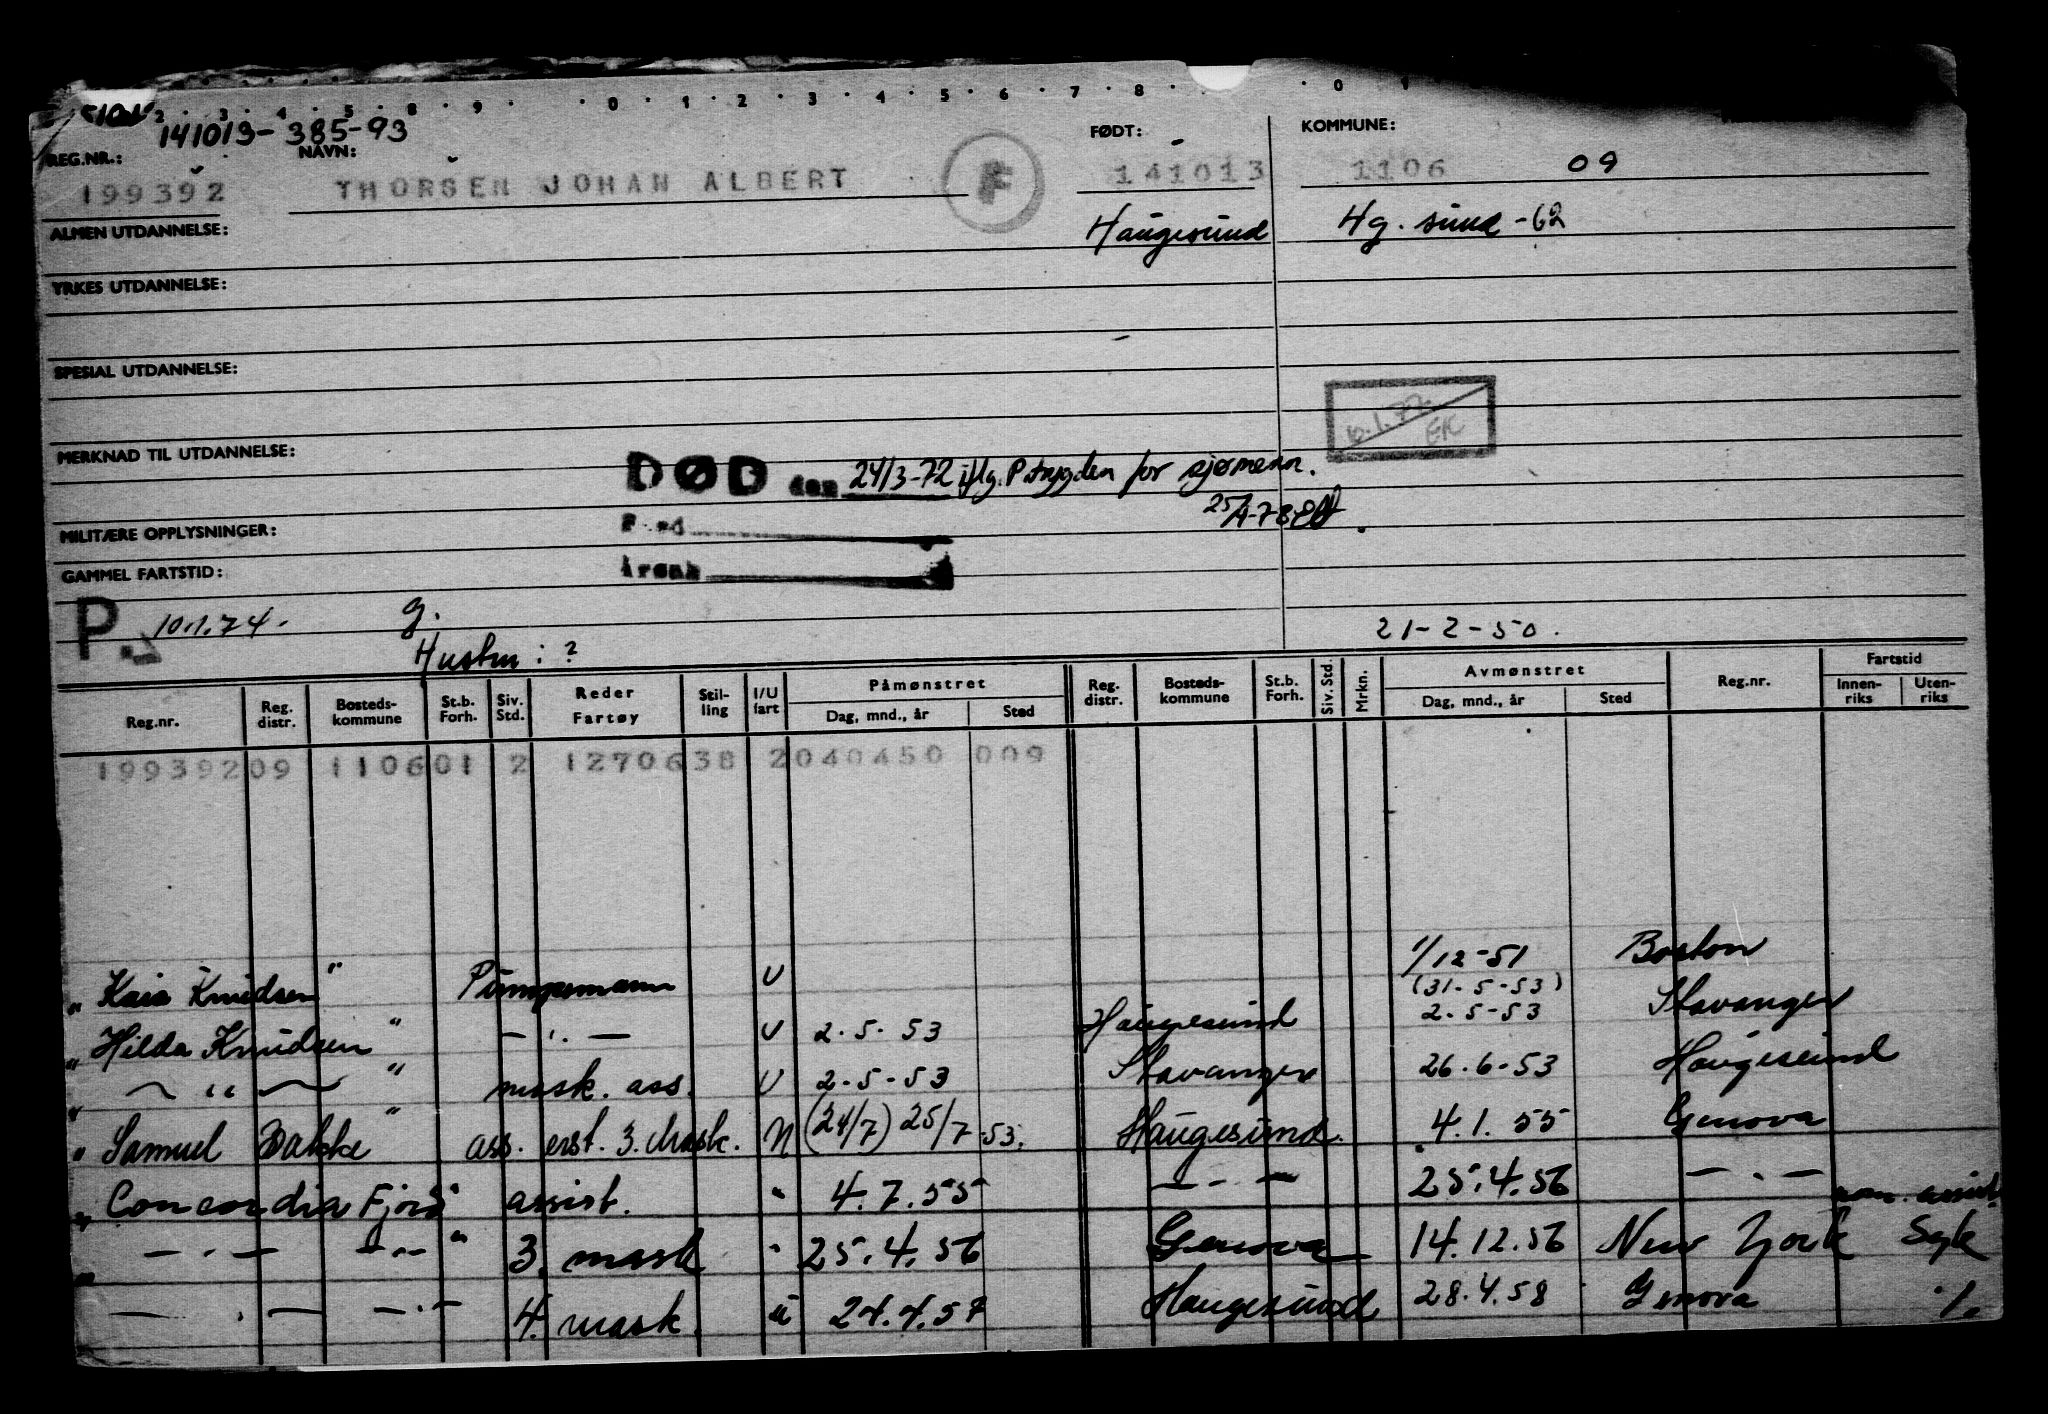 2 . 3 . 4 . 5 . 8 . 9 . . 0 . 1 . 2 . 3 . 4 . 5 . 6 . 7 . 8 . . 0 . 1
141013-385-93
REG.NR.: NAVN: FØDT: KOMMUNE:
199392 THORSEN JOHAN ALBERT F 141013 1106 09
ALMEN UTDANNELSE: Haugesund Hg.sund -62
YRKES UTDANNELSE:
SPESIAL UTDANNELSE:
10.1.72 EK
MERKNAD TIL UTDANNELSE:
DØD den 24/3-72 iflg. P.trygden for sjømenn.
MILITÆRE OPPLYSNINGER:
GAMMEL FARTSTID: Årønk
P. 10.1.74. g.
Hustru : ? 21-2-50.
Reg.nr. Reg. distr. Bosteds-kommune St.b. Forh. Siv. Std. Reder Fartøy Stil-ling I/U fart Påmønstret Dag, mnd., år Sted Reg. distr. Bosteds-kommune St.b. Forh. Siv. Std. Mrkn. Avmønstret Dag, mnd., år Sted Reg.nr. Fartstid Innen-riks Uten-riks
199392 09 1106 01 2 1270638 2 040450 009
" Kaia Knudsen " Pumpemann U 1/12-51 Boston
" Hilda Knudsen " — " — U 2.5.53 Haugesund (31.5-53) 2.5-53 Stavanger
" — " — " mask. ass. U 2-5-53 Stavanger 26.6-53 Haugesund
" Samuel Bakke " ass. erst. 3. Mask. N (24/7) 25/7.53. Haugesund. 4.1.55 Genova
" Concordia Fjord " assist. " 4.7.55 — " — 25.4.56 — . —
" — . — — . — " 3. mask " 25.4.56 Genova 14.12.56 New York Syk
— . — — . — 4. mask. u 24.4.57 Haugesund 28.4.58 Genova